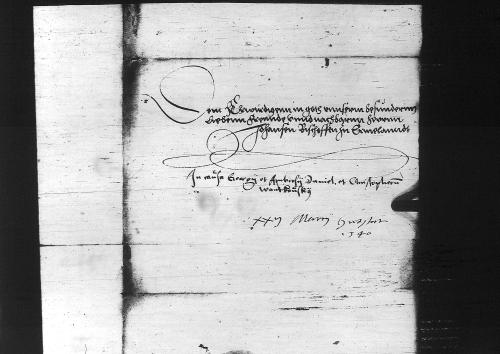 Dem Erwirdigenn in got unnserm besunderenn
liebenn freunde unnd nachbgern herrnn
Johansen Bischoffen zu Ermelanndt
In causa Georgij et Ambrosij Daniel, et Christopherum
XXVJ Marcij
1540